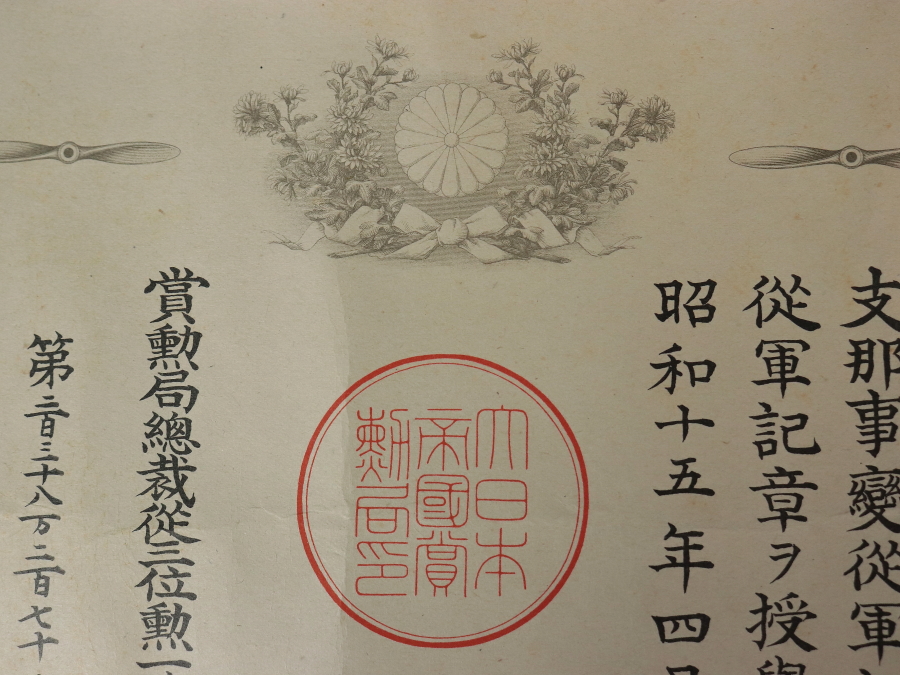 支那事變從軍
從軍記章ヲ授與
昭和十五年四月
大日本
帝國賞
勲局印
賞勲局總裁從三位勲一
第二百三十八万二百七十